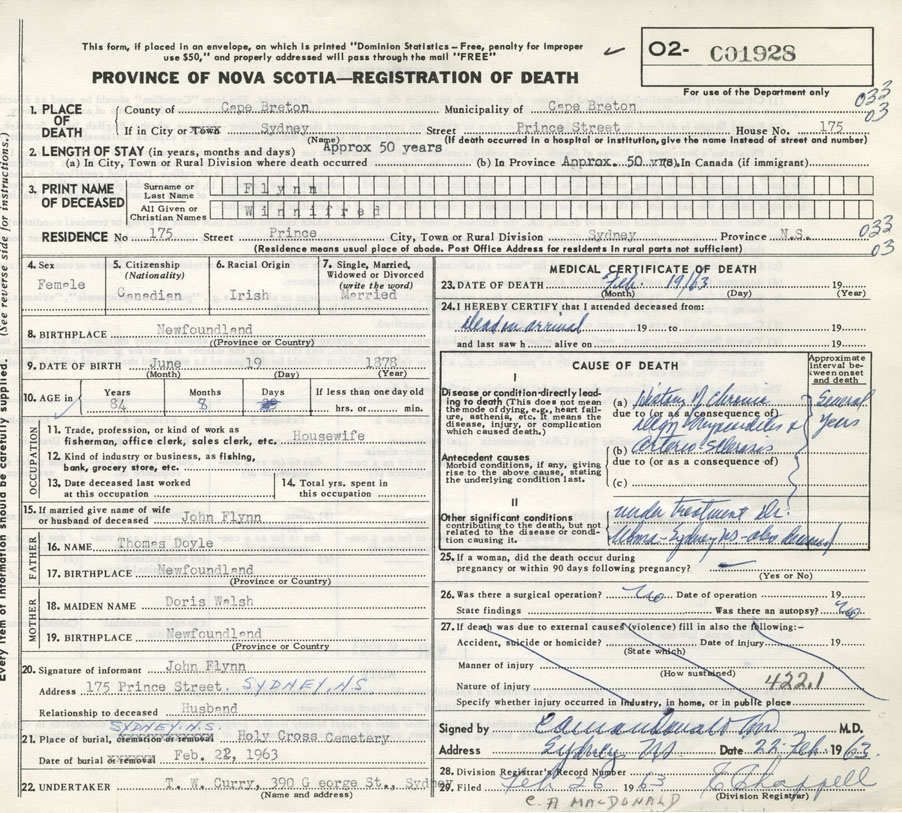 This form, if placed in an envelope, on which is printed "Dominion Statistics – Free, penalty for improper
use $50," and properly addressed will pass through the mail "FREE"
O2- C01928
PROVINCE OF NOVA SCOTIA—REGISTRATION OF DEATH
For use of the Department only
033
03
1. PLACE OF DEATH
County of Cape Breton Municipality of Cape Breton
If in City or Town Sydney Street Prince Street House No. 175
(Name) (If death occurred in a hospital or institution, give the name instead of street and number)
2. LENGTH OF STAY (in years, months and days) Approx 50 years
(a) In City, Town or Rural Division where death occurred (b) In Province Approx. 50 yrs. In Canada (if immigrant)
3. PRINT NAME OF DECEASED
Surname or Last Name Flynn
All Given or Christian Names Winnifred
RESIDENCE No 175 Street Prince City, Town or Rural Division Sydney Province N.S.
(Residence means usual place of abode. Post Office Address for residents in rural parts not sufficient)
033
03
4. Sex
Female
5. Citizenship (Nationality)
Canadian
6. Racial Origin
Irish
7. Single, Married, Widowed or Divorced (write the word)
Married
8. BIRTHPLACE Newfoundland
(Province or Country)
9. DATE OF BIRTH June 19 1878
(Month) (Day) (Year)
10. AGE in Years Months Days If less than one day old
84 8 hrs. or min.
OCCUPATION
11. Trade, profession, or kind of work as fisherman, office clerk, sales clerk, etc. Housewife
12. Kind of industry or business, as fishing, bank, grocery store, etc.
13. Date deceased last worked at this occupation
14. Total yrs. spent in this occupation
15. If married give name of wife or husband of deceased John Flynn
FATHER
16. NAME Thomas Doyle
17. BIRTHPLACE Newfoundland
(Province or Country)
MOTHER
18. MAIDEN NAME Doris Walsh
19. BIRTHPLACE Newfoundland
(Province or Country)
20. Signature of informant John Flynn
Address 175 Prince Street. SYDNEY, NS
Relationship to deceased Husband
SYDNEY. N.S.
21. Place of burial, cremation or removal Holy Cross Cemetary
Date of burial or removal Feb. 22, 1963
22. UNDERTAKER T. W. Curry, 390 G eorge St., Sydney
(Name and address)
MEDICAL CERTIFICATE OF DEATH
23. DATE OF DEATH Feb. 19/63 19
(Month) (Day) (Year)
24. I HEREBY CERTIFY that I attended deceased from:
dead on arrival 19 to 19
and last saw h alive on 19
CAUSE OF DEATH
Approximate interval between onset and death
I
Disease or condition directly leading to death (This does not mean the mode of dying, e.g., heart failure, asthenia, etc. It means the disease, injury, or complication which caused death.)
(a) History of chronic
due to (or as a consequence of)
Several years
Antecedent causes
Morbid conditions, if any, giving rise to the above cause, stating the underlying condition last.
(b) arterio sclerosis
due to (or as a consequence of)
(c)
II
Other significant conditions contributing to the death, but not related to the disease or condition causing it.
under treatment Dr.
Sydney NS - also deceased
25. If a woman, did the death occur during pregnancy or within 90 days following pregnancy?
(Yes or No)
26. Was there a surgical operation? no Date of operation 19
State findings Was there an autopsy? no
27. If death was due to external causes (violence) fill in also the following:—
Accident, suicide or homicide? Date of injury 19
(State which)
Manner of injury
(How sustained)
Nature of injury 422.1
Specify whether injury occurred in industry, in home, or in public place
Signed by C A MacDonald MD M.D.
Address Sydney NS Date 22 Feb. 1963.
28. Division Registrar's Record Number
29. Filed Feb 26 1963 E Chappell
(Division Registrar)
C. A MACDONALD
(See reverse side for instructions.)
Every item of information should be carefully supplied.